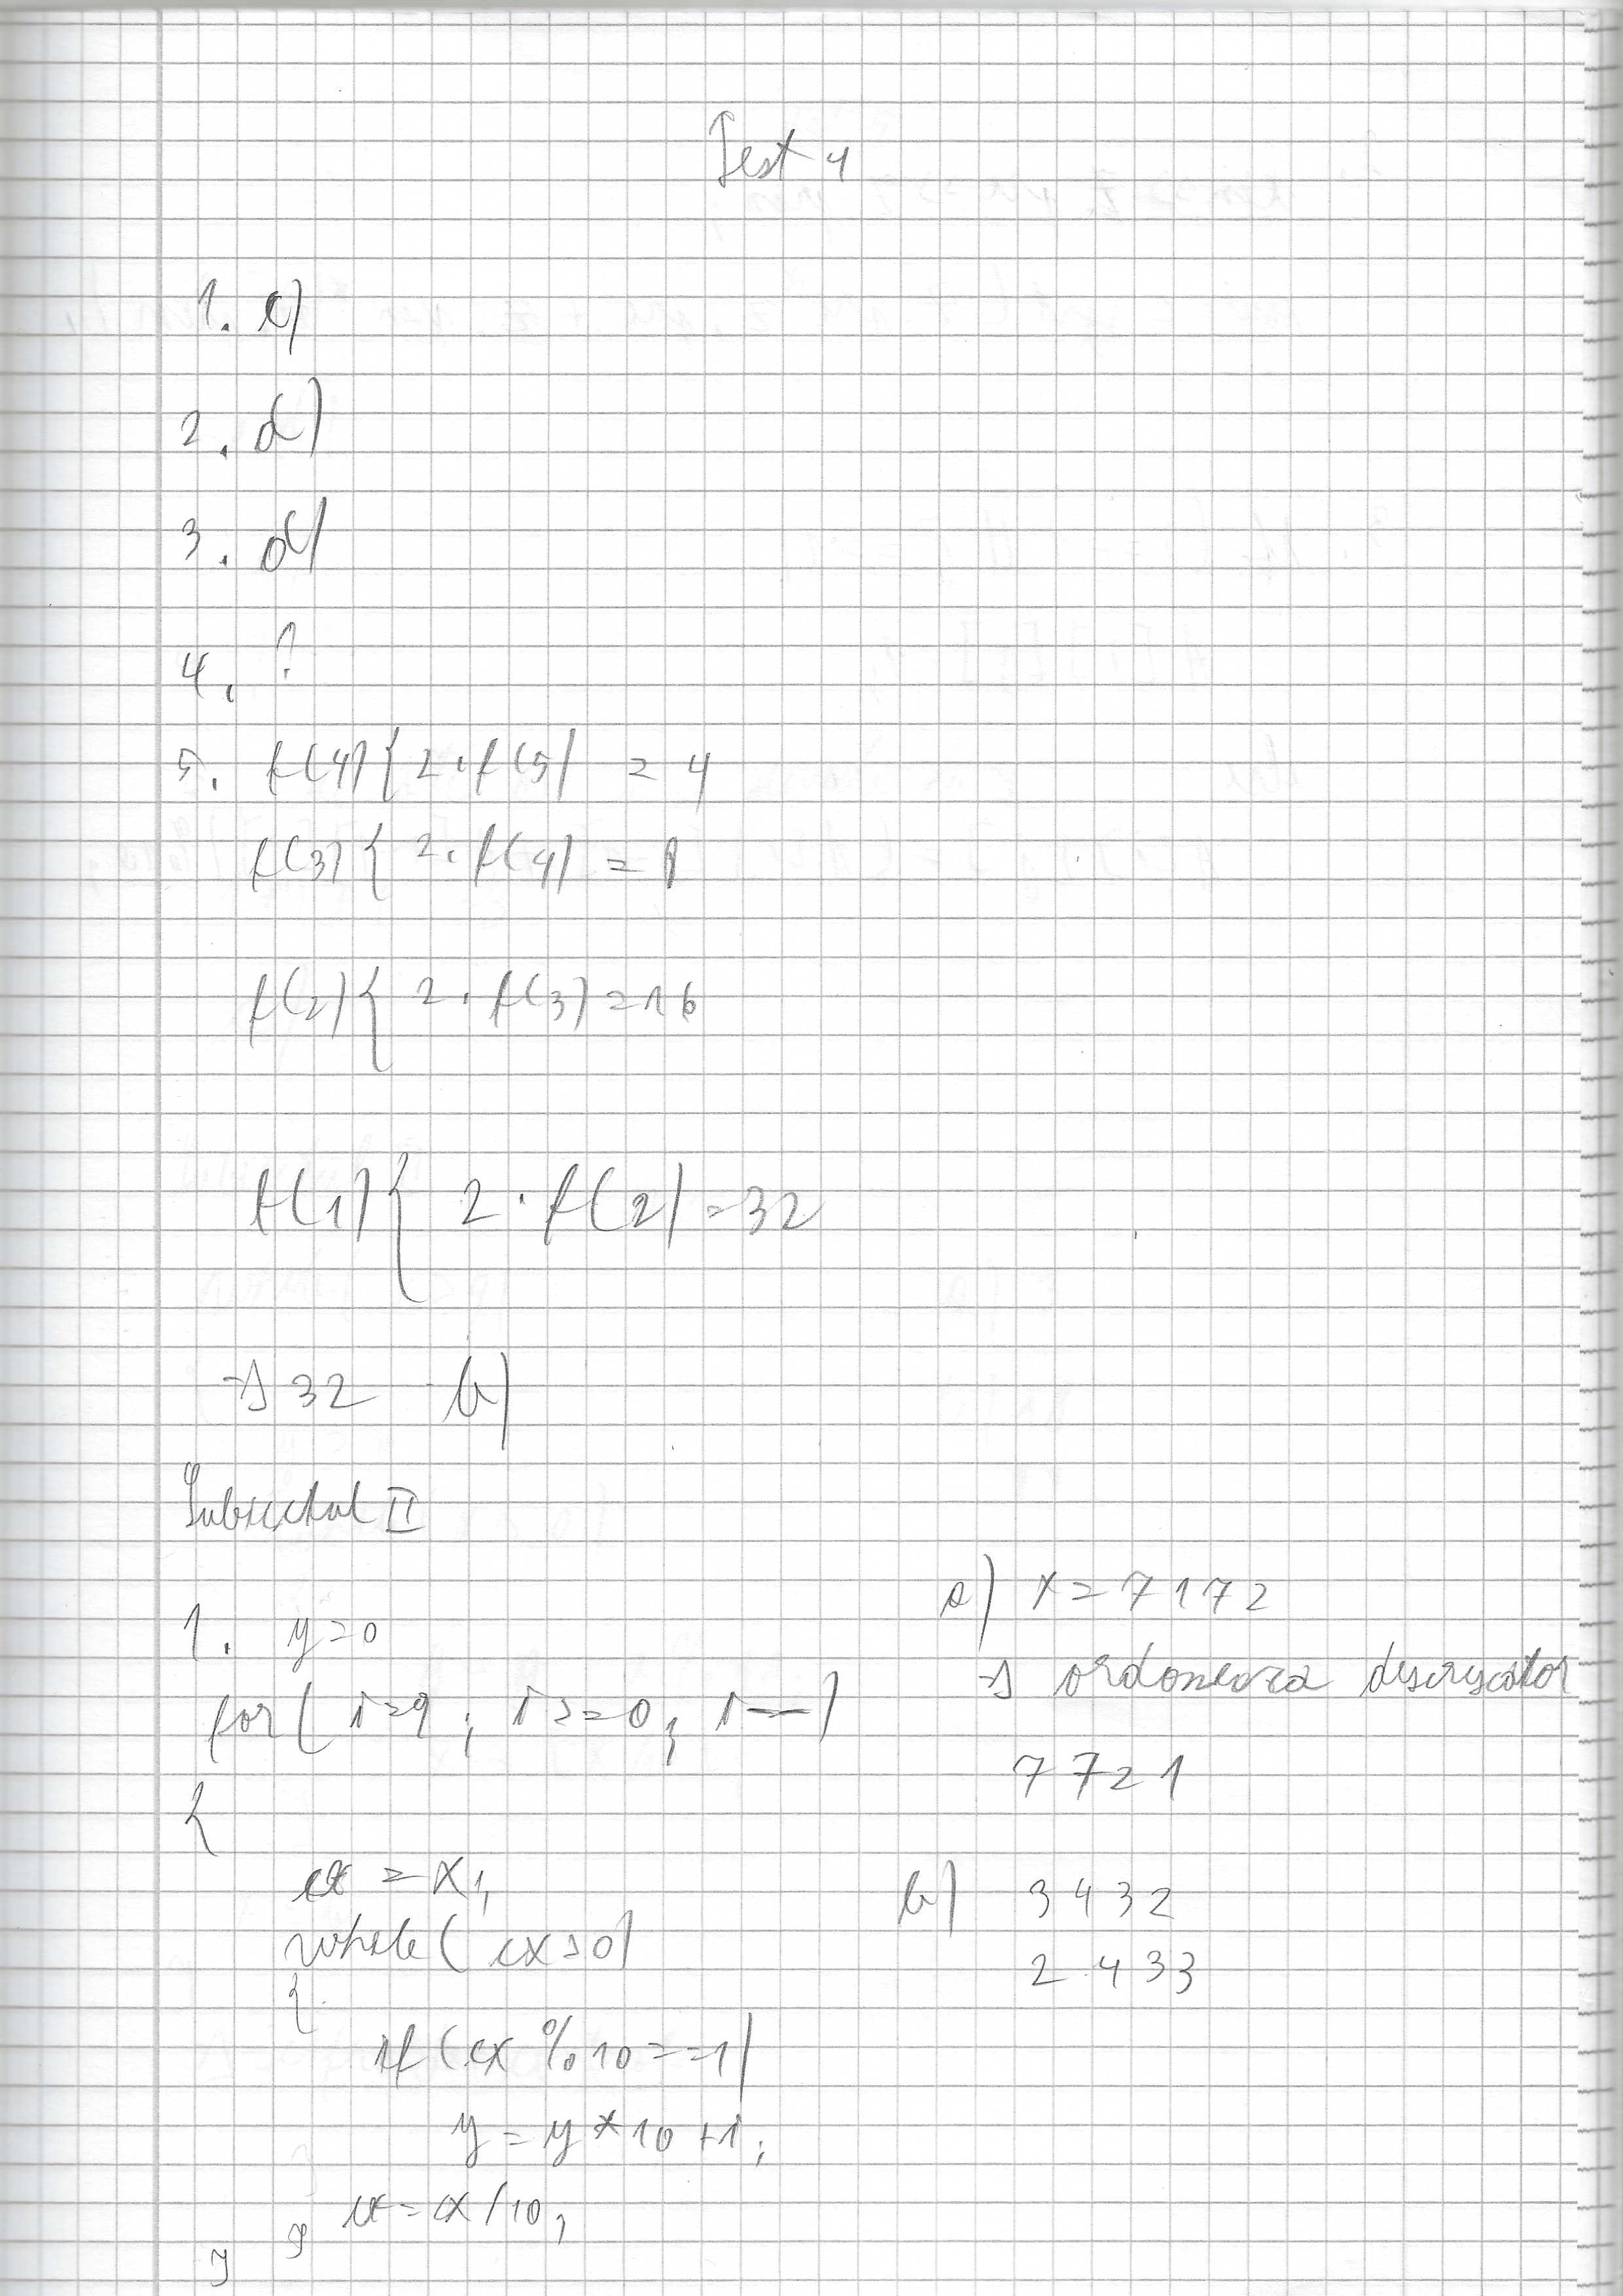 Test 4
1. c)
2. d)
3. d)
4. ?
5. f(4){ 2·f(5) = 4
f(3){ 2·f(4) = 8
f(2){ 2·f(3) = 16
f(1){ 2·f(2) = 32
=> 32 b)
Subiectul II
1. y=0
for( i=9; i>=0; i--)
{
cx = x;
while( cx>0)
{
if (cx % 10 == i)
y = y * 10 + i;
cx = cx/10;
}
}
a) x = 7172
=> ordoneaza descrescator
7721
b) 3432
2433